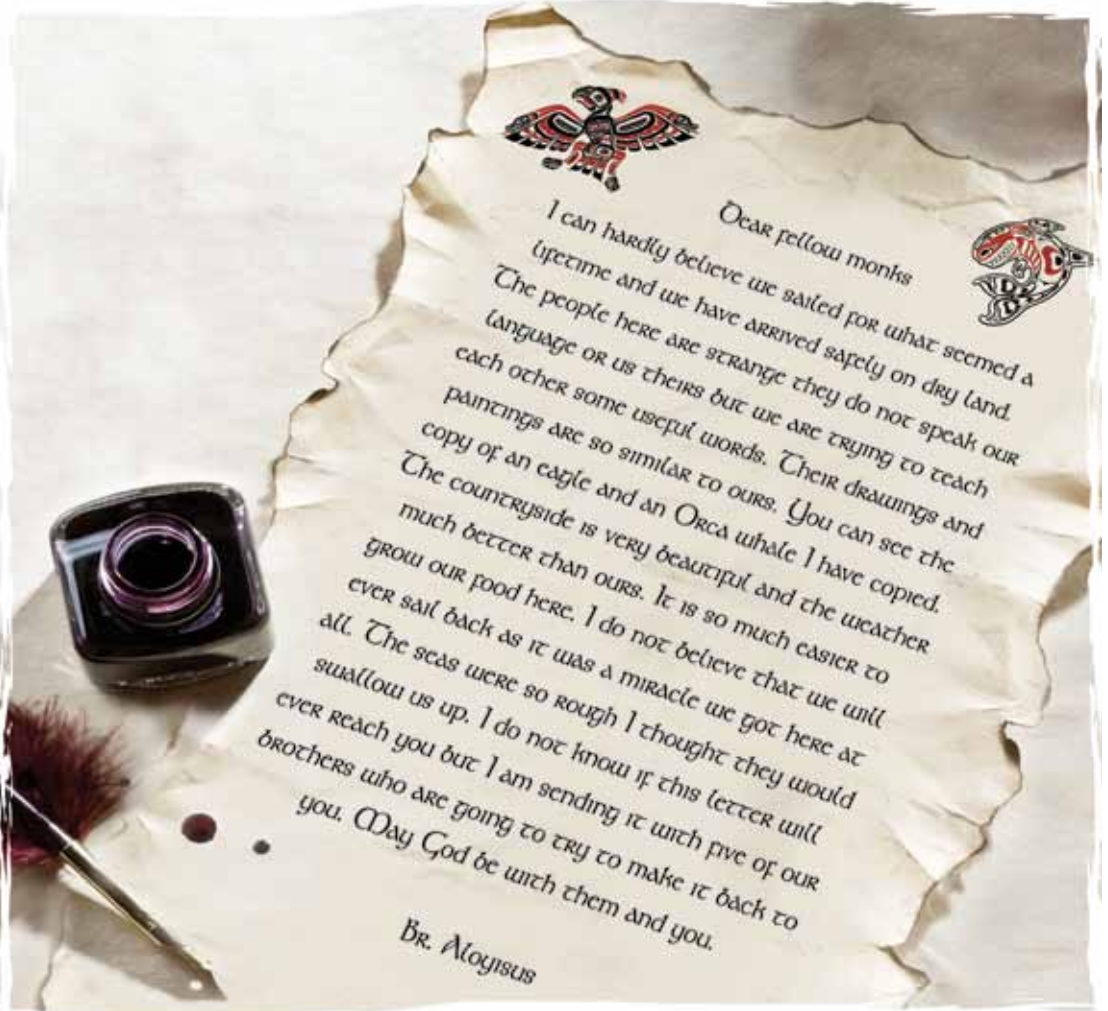 Dear fellow monks
I can hardly believe we sailed for what seemed a
lifetime and we have arrived safely on dry land.
The people here are strange they do not speak our
language or us theirs but we are trying to teach
each other some useful words. Their drawings and
paintings are so similar to ours. You can see the
copy of an eagle and an Orca whale I have copied.
The countryside is very beautiful and the weather
much better than ours. It is so much easier to
grow our food here. I do not believe that we will
ever sail back as it was a miracle we got here at
all. The seas were so rough I thought they would
swallow us up. I do not know if this letter will
ever reach you but I am sending it with five of our
brothers who are going to try to make it back to
you. May God be with them and you.
Br. Aloyisus